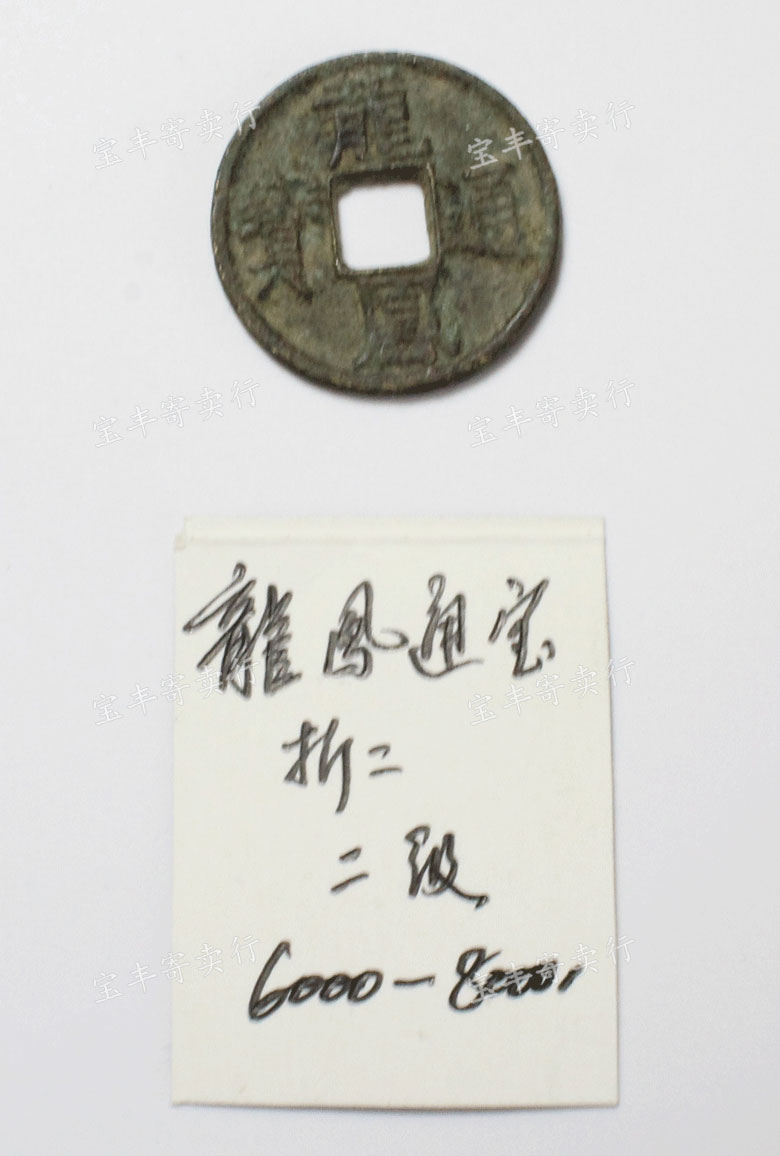 龍鳳通寳
宝丰寄卖行
宝丰寄卖行
宝丰寄卖行
宝丰寄卖行
龍鳳通宝
宝丰寄卖行
宝丰寄卖行
折二
二级
6000－8000,
宝丰寄卖行
宝丰寄卖行